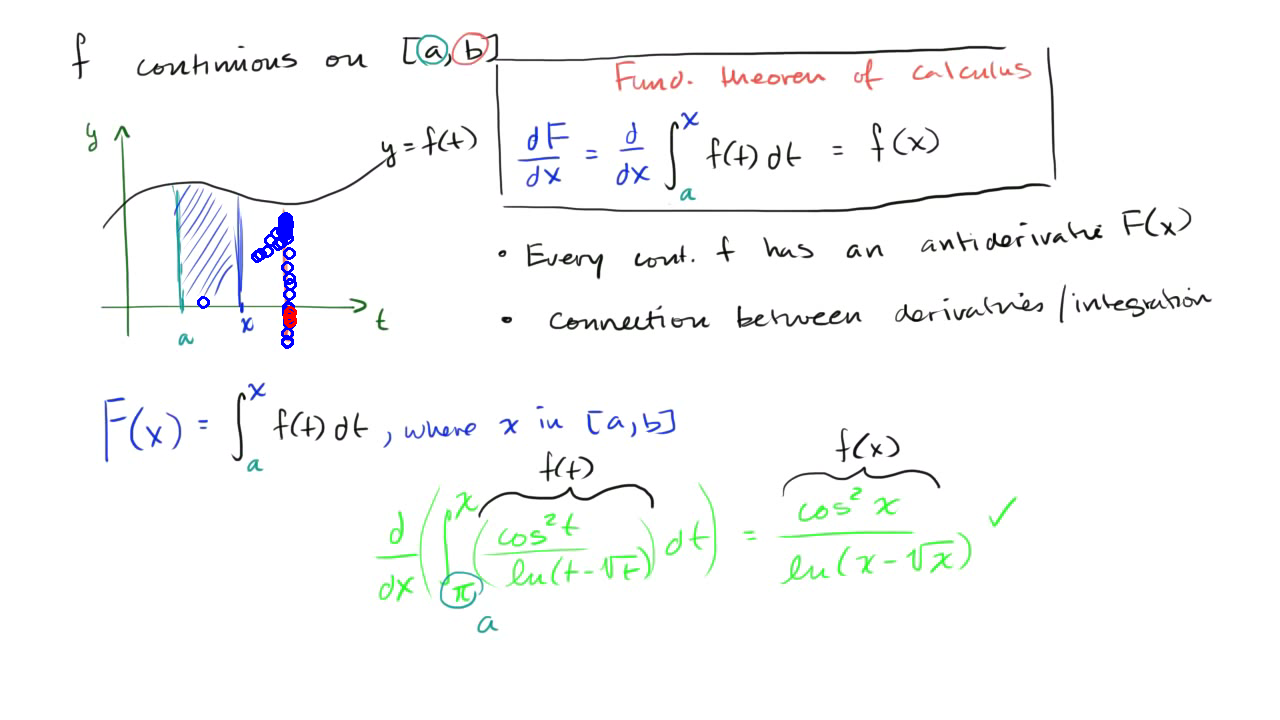 f continuous on [a, b]
Fund. theorem of calculus
dF/dx = d/dx ∫_a^x f(t) dt = f(x)
y
y = f(t)
a
x
t
• Every cont. f has an antiderivative F(x)
• connection between derivatives / integration
F(x) = ∫_a^x f(t) dt, where x in [a, b]
f(t)
f(x)
d/dx (∫_π^x (cos²t / ln(t-√t)) dt) = cos²x / ln(x-√x) ✓
a